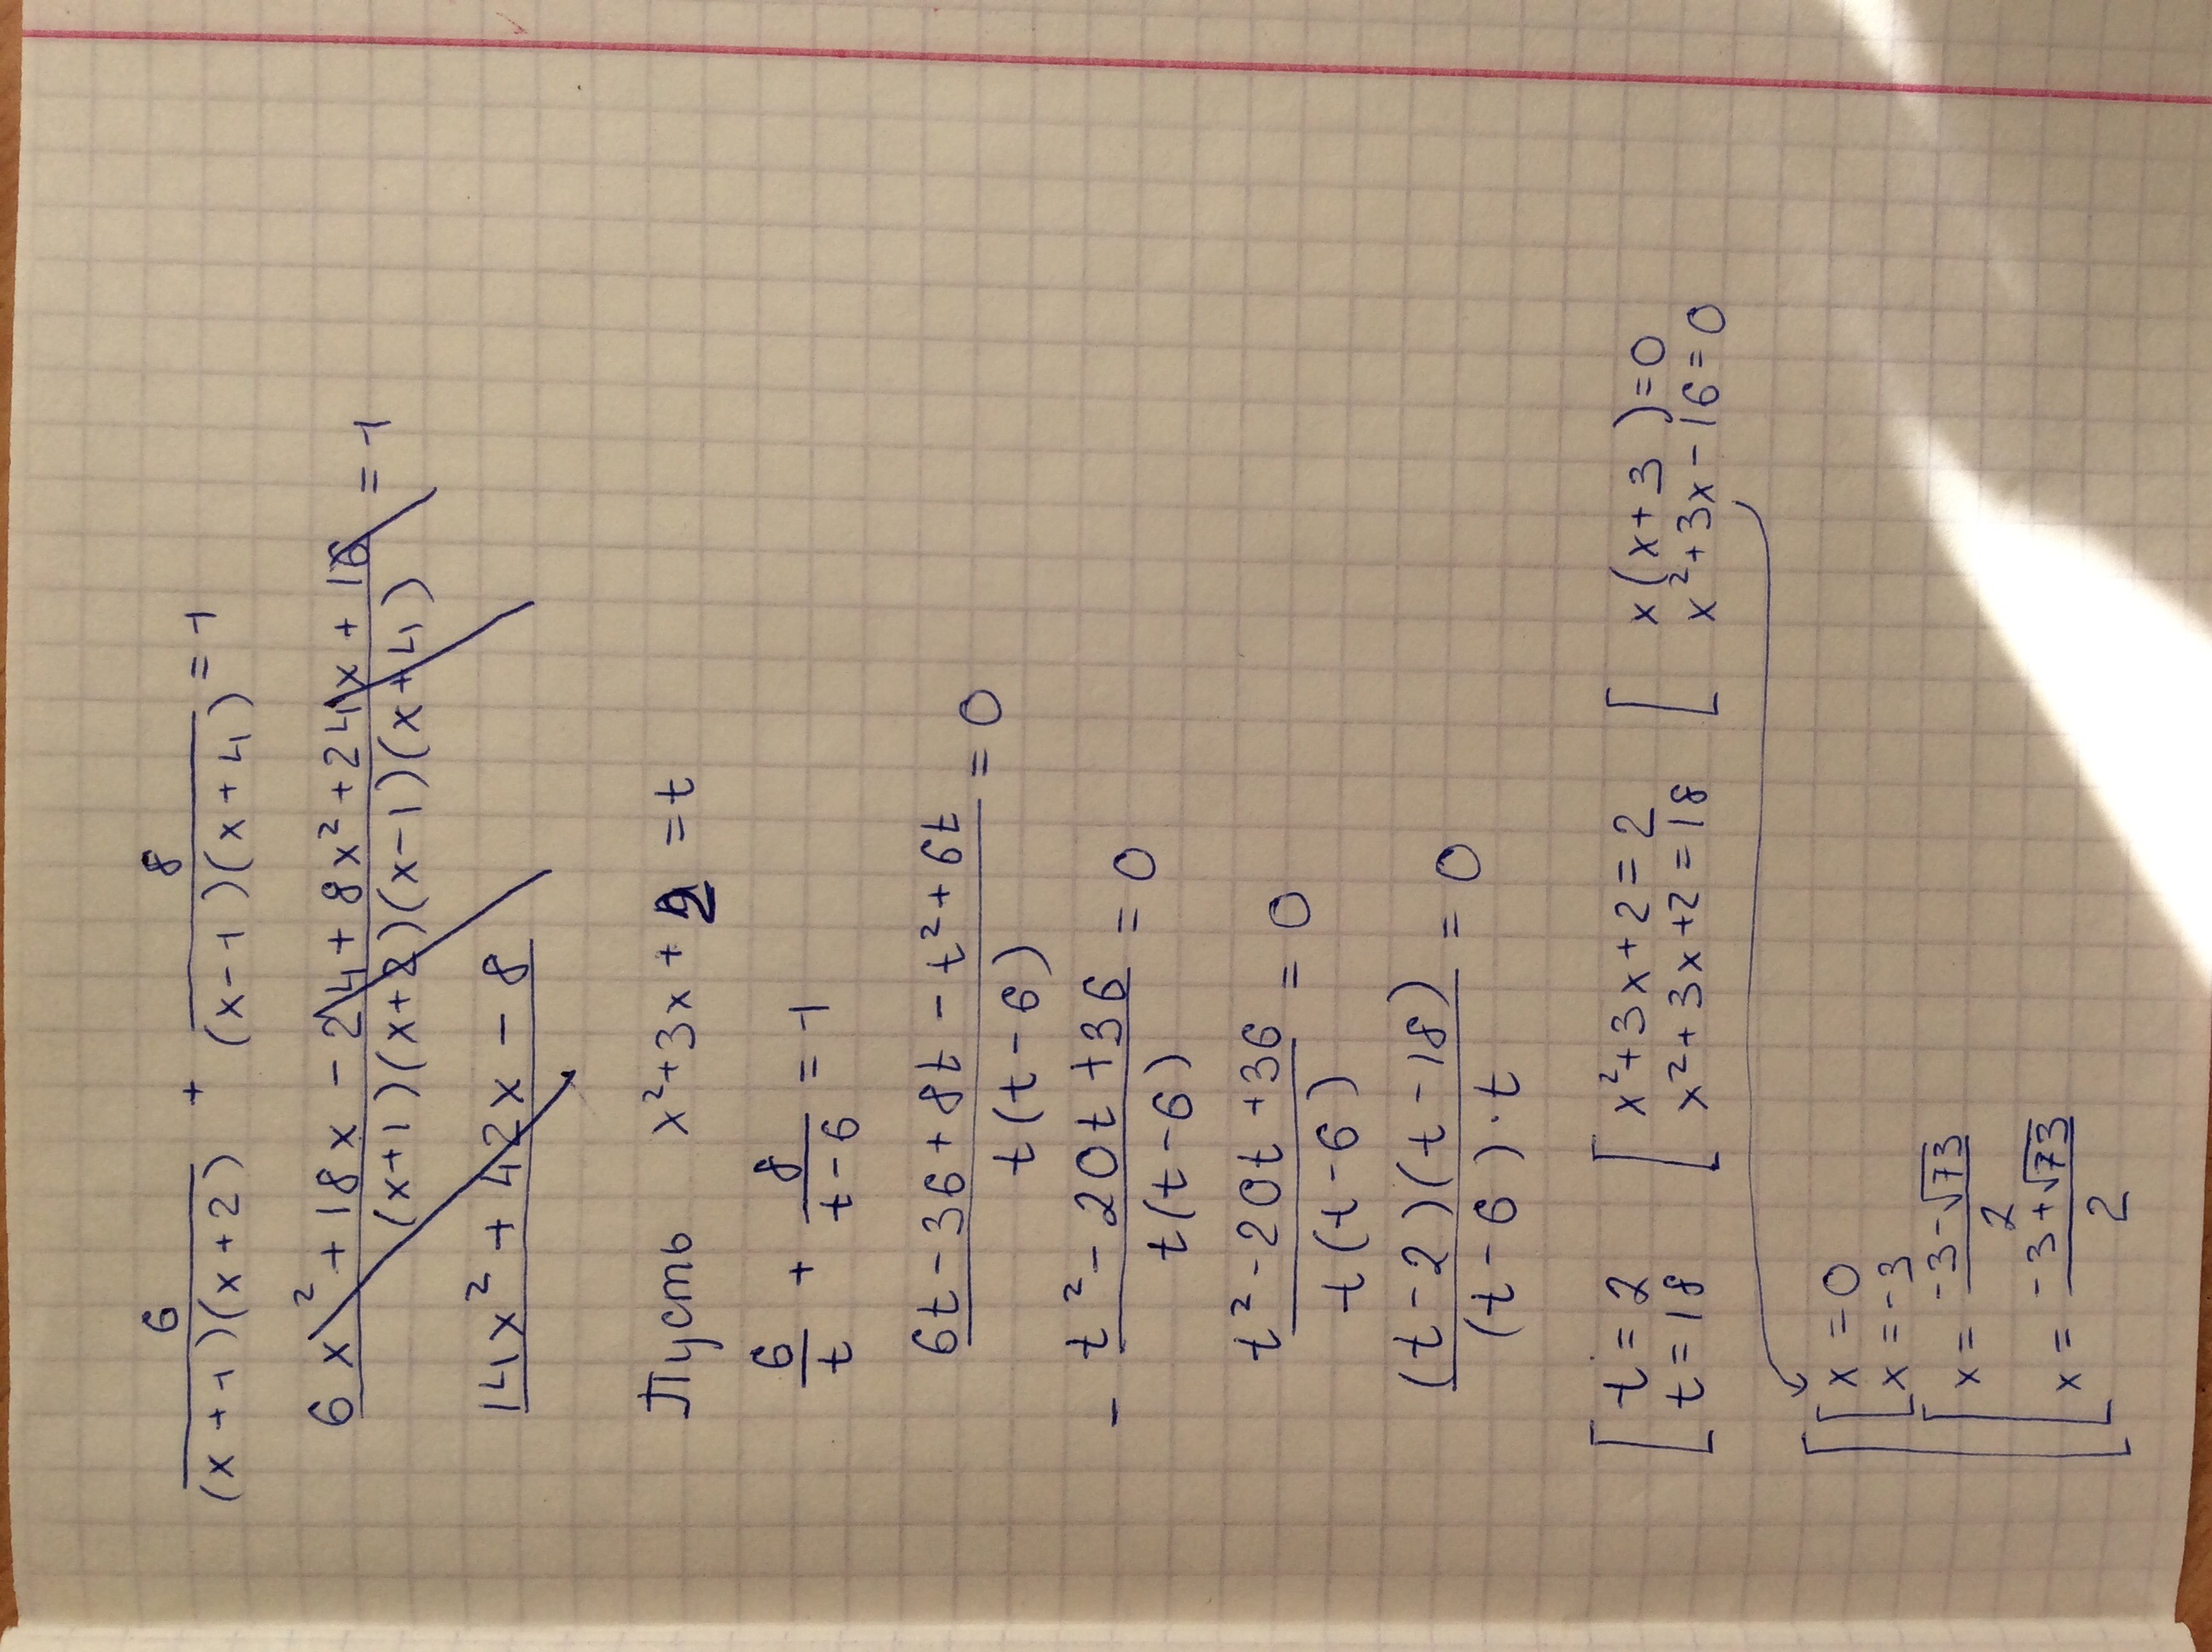 6/((x+1)(x+2)) + 8/((x-1)(x+4)) = 1
(6x²+18x-24+8x²+24x+16)/((x+1)(x+2)(x-1)(x+4)) = 1
14x²+42x-8
Пусть x²+3x+2=t
6/t + 8/(t-6) = 1
(6t-36+8t-t²+6t)/(t(t-6)) = 0
- (t²-20t+36)/(t(t-6)) = 0
(t²-20t+36)/(t(t-6)) = 0
((t-2)(t-18))/((t-6)·t) = 0
[t=2 [x²+3x+2=2 [x(x+3)=0
t=18 x²+3x+2=18 x²+3x-16=0
[[x=0
x=-3
[x=(-3-√73)/2
x=(-3+√73)/2